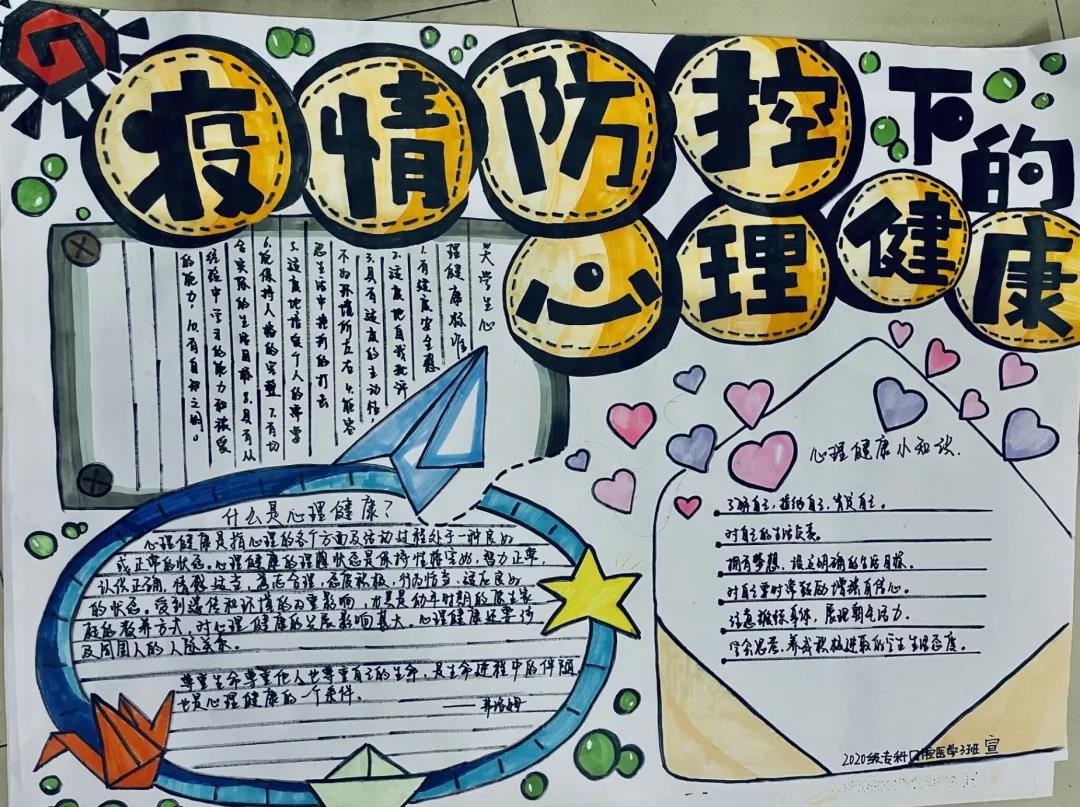 疫情防控下的
心理健康
大学生心
理健康标准
1.有适度安全感
2.适度地自我批评
3.具有适度的主动性
不为环境所左右 4.能容
忍生活中挫折的打击
5.适度地接受个人的需要
6.能保持人格的完整 7.有切
合实际的生活目标 8.具有从
经验中学习的能力和接受
的能力，10.有自知之明。
什么是心理健康？
心理健康是指心理的各个方面及活动过程处于一种良好
或正常的状态。心理健康的理想状态是保持性格完好、智力正常、
认代正确，情感适当，意志合理，态度积极，行为恰当，适应良好
的状态。受到遗传和环境的双重影响，尤其是幼年时期的原生家
庭的教养方式，对心理健康的发展影响甚大。心理健康还要涉
及周围人的人际关系。
尊重生命尊重他人也尊重自己的生命，是生命进程中的伴随
也是心理健康的一个条件。
——弗洛姆
心理健康小知识.
了解自己、接纳自己、肯定自己。
对自己的生活负责。
拥有梦想，设定明确的生活目标。
对自己要时常鼓励增强自信心。
注意锻炼身体，展现朝气活力。
学会思考，养成积极进取的学生生活态度。
2020级专科口腔医学3班 宣